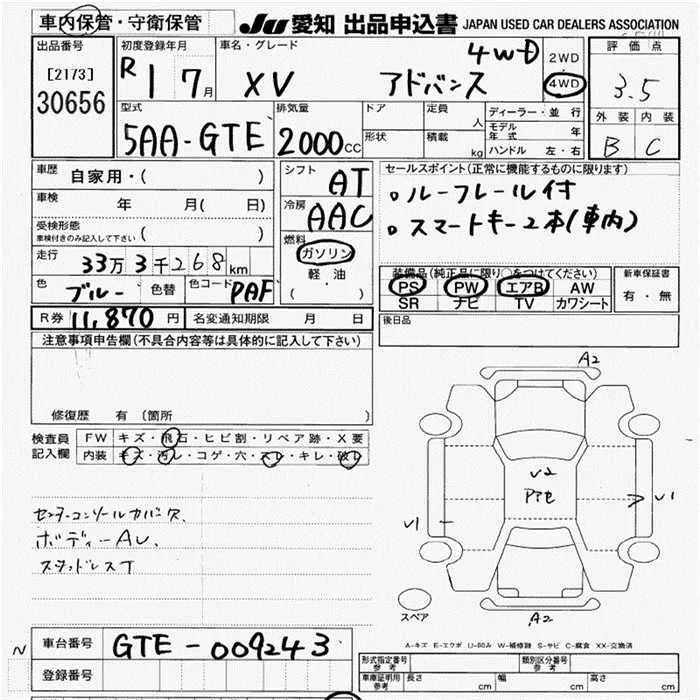 車内保管・守衛保管 JU 愛知 出品申込書 JAPAN USED CAR DEALERS ASSOCIATION
出品番号 初度登録年月 車名・グレード 4WD 2WD 評価点
[2173] R 1 7月 XV アドバンス 4WD 3.5
30656
型式 排気量 ドア 定員 人 ディーラー・並行 外装 内装
5AA-GTE 2000cc 形状 積載 kg モデル年式 年 B C
ハンドル 左・右
車歴 自家用・( ) シフト AT セールスポイント(正常に機能するものに限ります)
車検 年 月( 日) 冷房 AAC 。ルーフレール付
受検形態 ( ) 。スマートキー2本(車内)
車検付きのみ記入して下さい
燃料 ガソリン
走行 33万3千268km 軽油 装備品(純正品に限り○をつけてください) 新車保証書
色 ブルー 色替 色コード PAF ( ) PS PW エアB AW 有・無
SR ナビ TV カワシート
R券 11,870円 名変通知期限 月 日 後日品
注意事項申告欄(不具合内容等は具体的に記入して下さい)
修復歴 有 (箇所 )
検査員 FW キズ・飛石・ヒビ割・リペア跡・X要
記入欄 内装 キズ・汚レ・コゲ・穴・スレ・キレ・破レ
A2
V2
V1
V1
センターコンソールカバーヌ.
ボディーAU.
スタッドレスT
スペア
A2
A-キズ E-エクボ U-凹み W-補修跡 S-サビ C-腐食 XX-交換済
N 車台番号 GTE-009243
登録番号
形式指定番号 参考 類別区分番号 参考
車庫証明用 参考 長さ cm 幅 cm 高さ cm